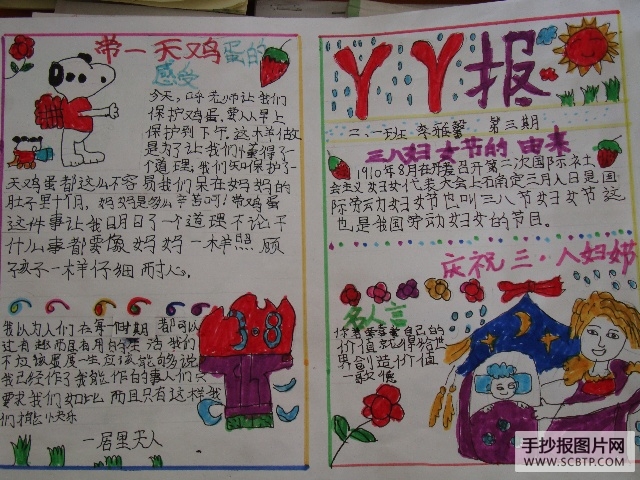 带一天鸡蛋的
感受
今天,呼老师让我们
保护鸡蛋,要从早上
保护到下午,这样做
是为了让我们懂得了一个
道理,我们知保护了一
天鸡蛋都这么不容易我们呆在妈妈的
肚子里十个月,妈妈是多么辛苦呵!带鸡蛋
这件事让我明白了一个道理不论干
什么事都要像妈妈一样照顾
孩子一样仔细耐心。
我以为人们在每一时期都可以
过有趣而且有用的生活我们
不应该虚度一生应该能够说
我已经作了我能作的事人们只
要求我们如此而且只有这样我
们才能有欢乐
一居里夫人
3 8
丫丫报
二·一班 李雅馨 第三期
三八妇女节的由来
1910年8月在丹麦召开第二次国际社
会主义妇女代表大会上右南定三月八日是国
际劳动妇女节也叫三八节妇女节这
也是我国劳动妇女的节目。
庆祝三·八妇女节
名人言
自己的
价值就得给世
界创造价值
一歌德
手抄报图片网
WWW.SCBTP.COM